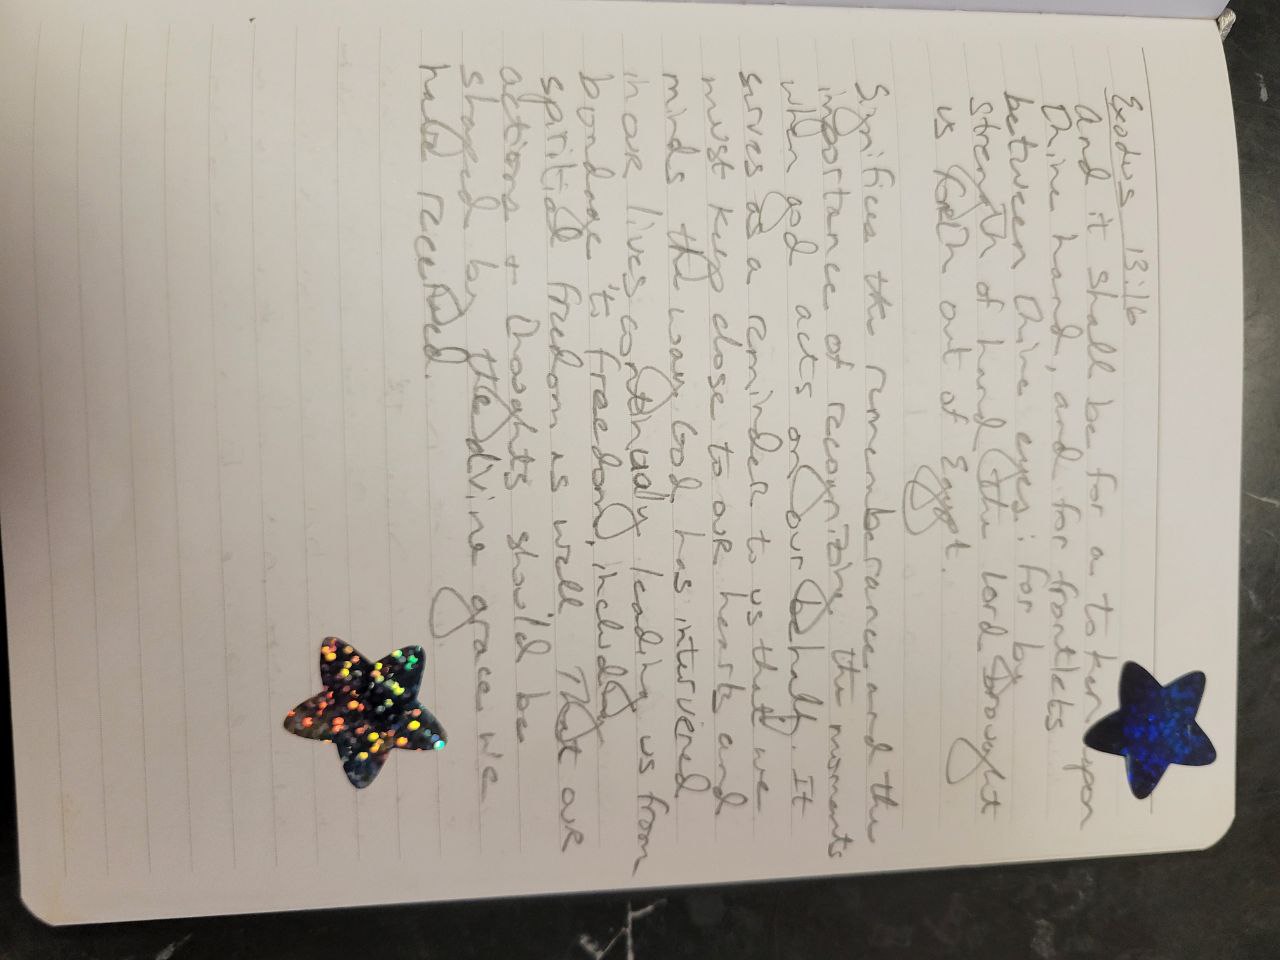 Exodus 13:16
And it shall be for a token upon
thine hand, and for frontlets
between thine eyes: for by
strength of hand the lord brought
us forth out of Egypt.
Signifies the rememberance and the
importance of recognizing the moments
when god acts on our behalf. It
serves as a reminder to us that we
must keep close to our hearts and
minds the way God has intervened
in our lives continually leading us from
bondage to freedom, including
spiritial freedom as well That our
actions + thoughts should be
shaped by the divine grace we
have received.